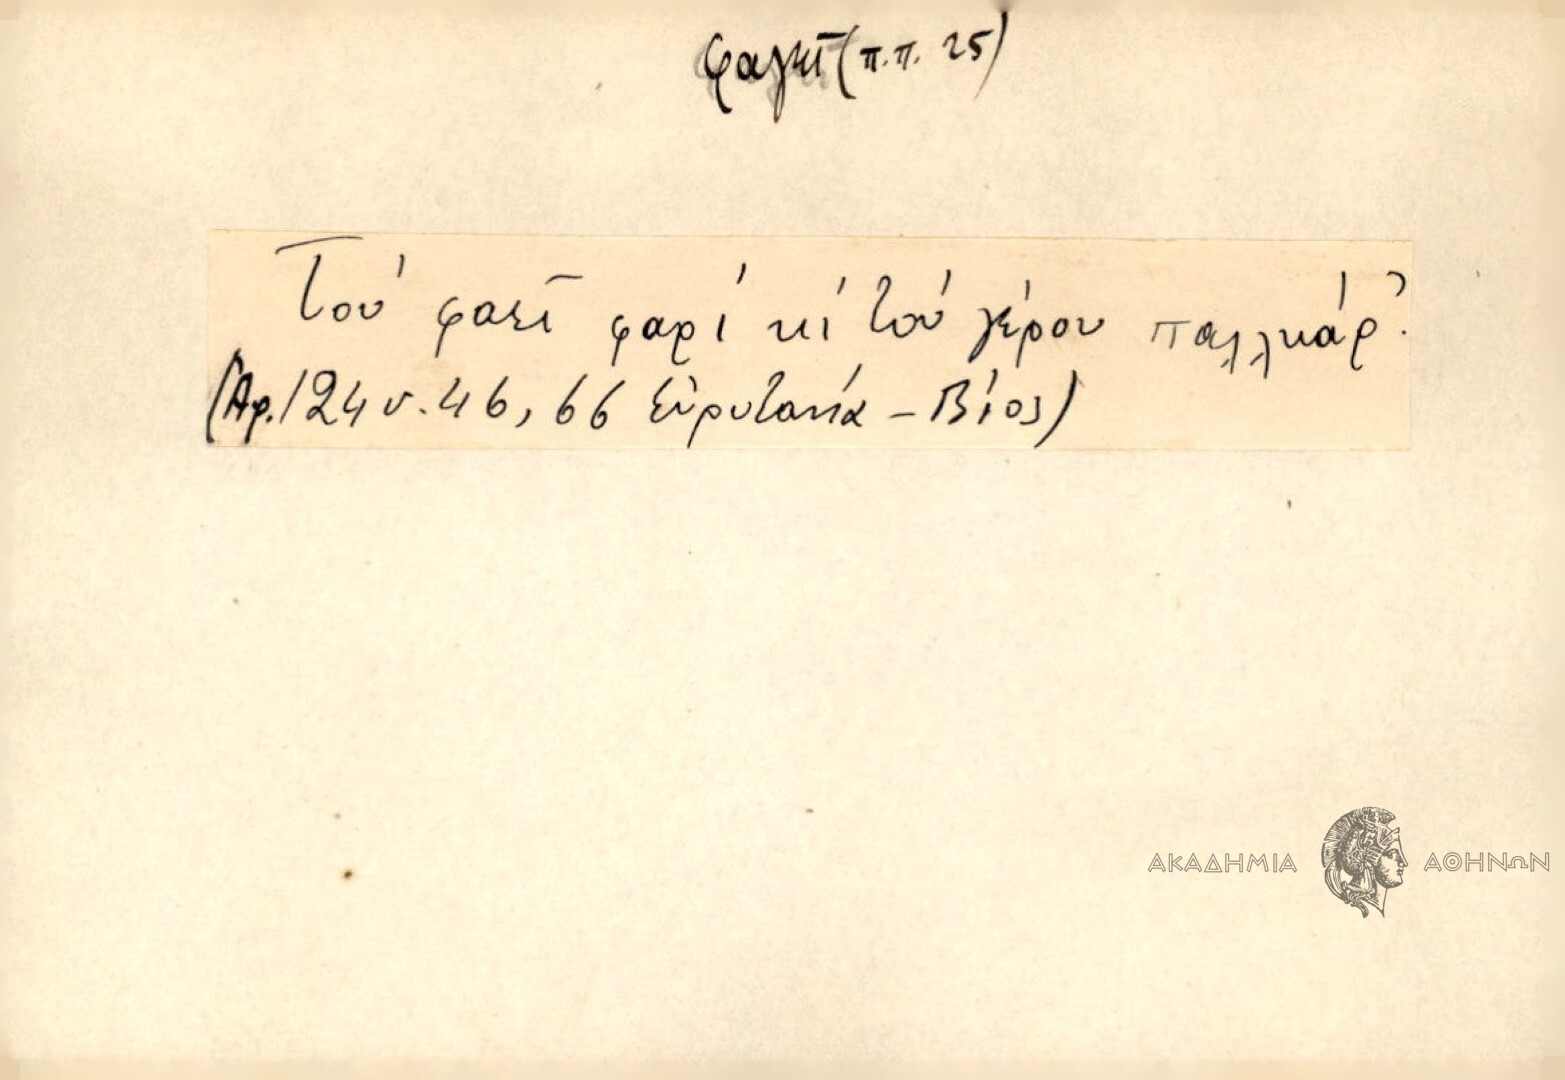 φαγεῖ (π.π. 25)
Τού φαεῖ φαρί κί τού γέρου παλλκάρ'.
(Αρ. 124 υ. 46, 66 Εὐρυτανία – Βίος)
ΑΚΑΔΗΜΙΑ ΑΘΗΝΩΝ